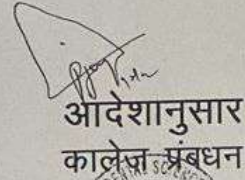 आदेशानुसार
कालेज प्रबंधन